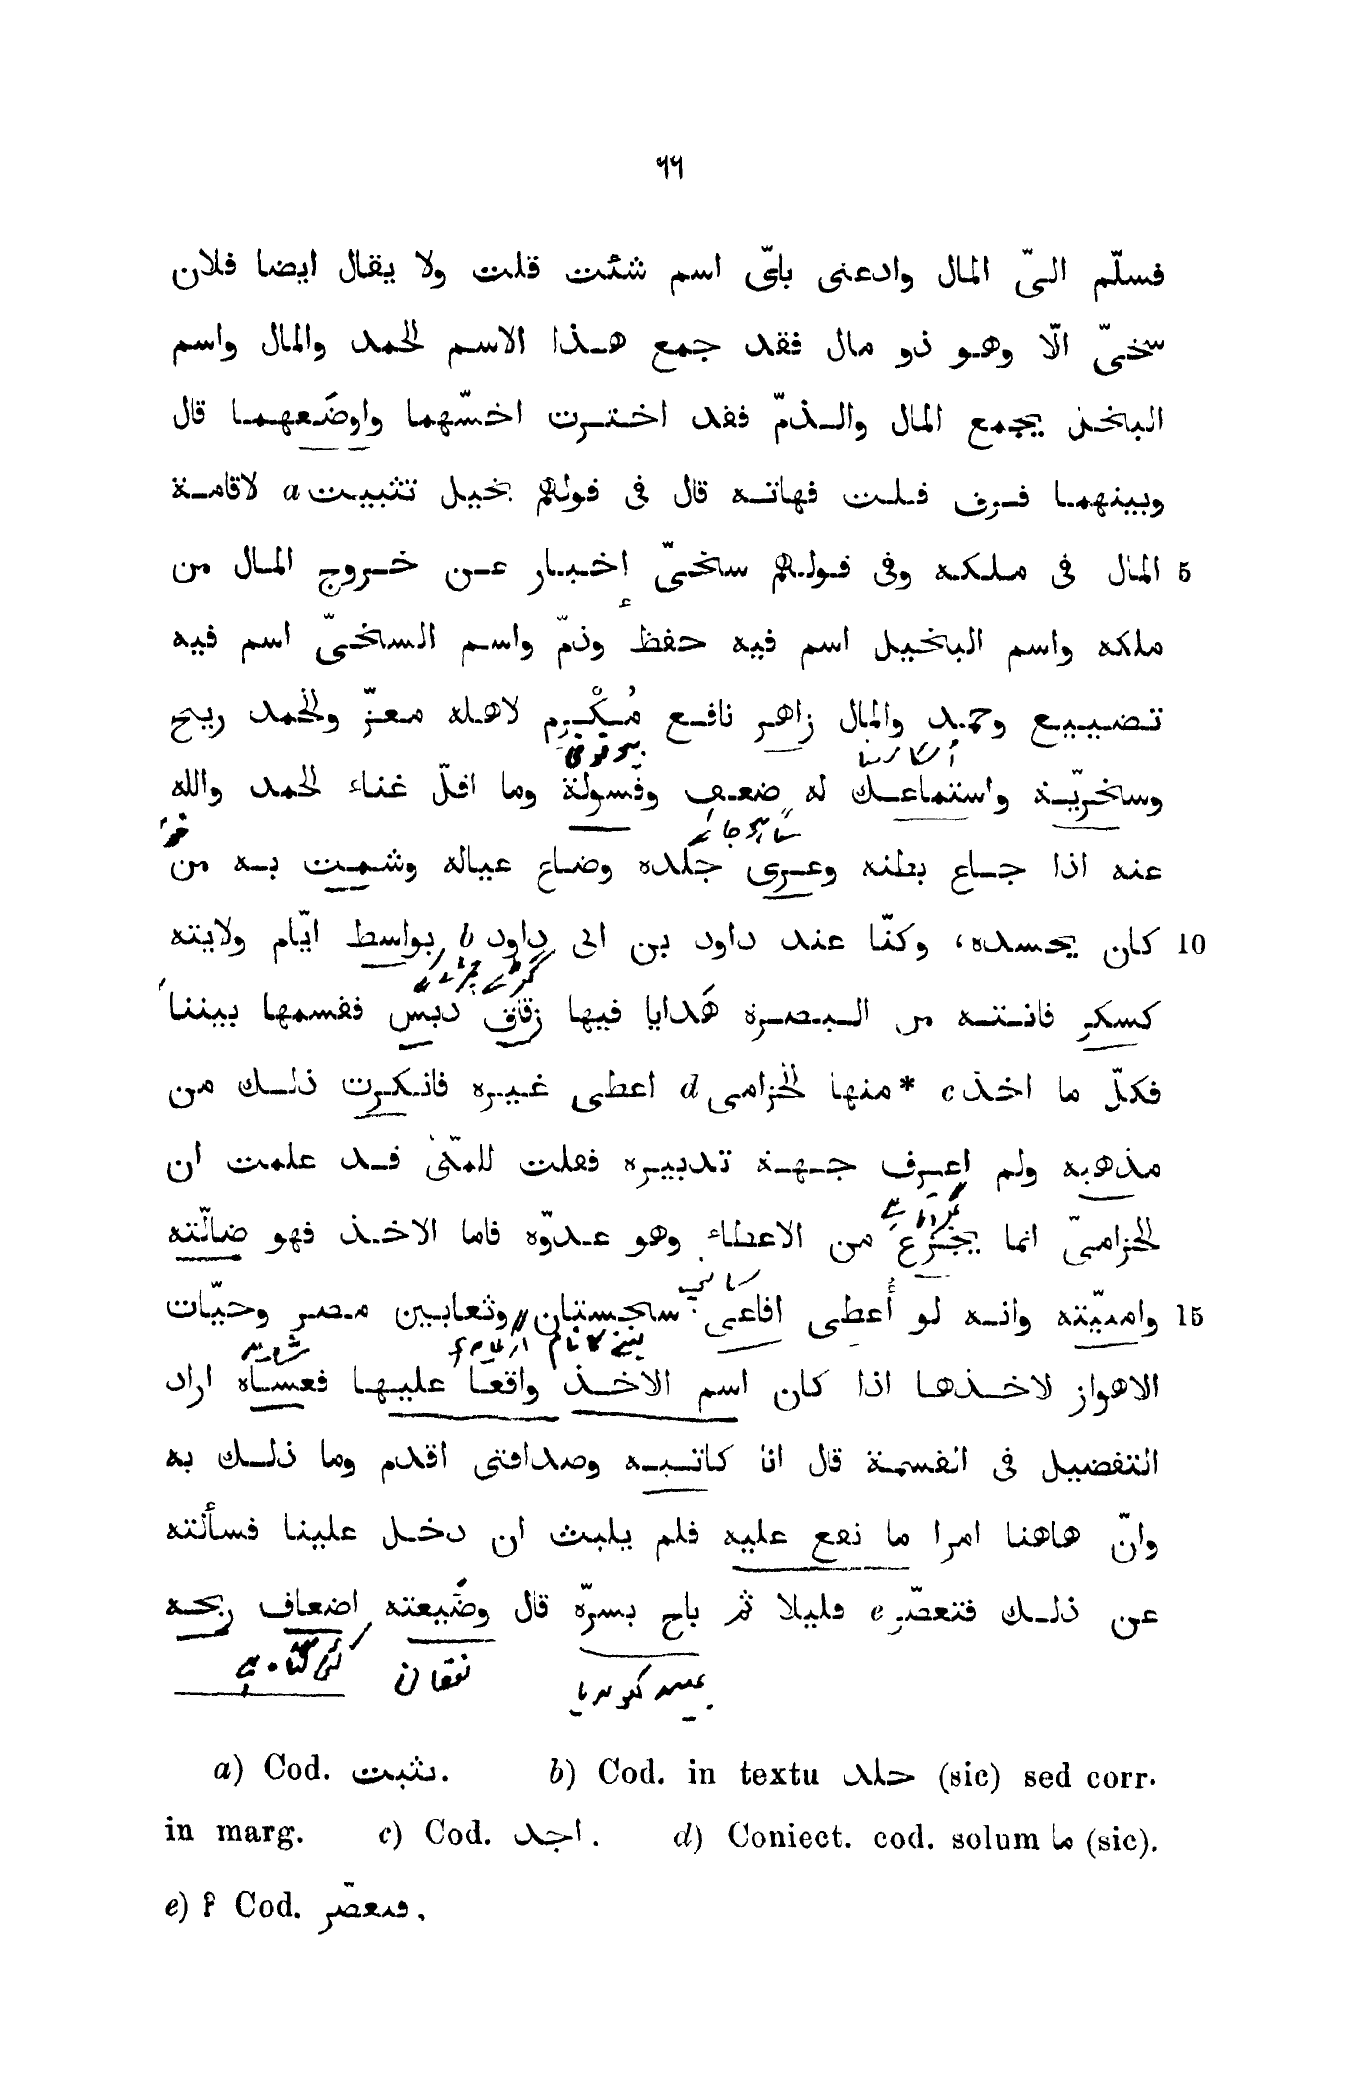 ٦٦
فسلّم الىّ المال وادعنى باىّ اسم شئت قلت ولا يقال ايضا فلان
سخىّ الّا وهو ذو مال فقد جمع هذا الاسم الحمد والمال واسم
البخل يجمع المال والذمّ فقد اخترت اخسّهما واوضَعهما قال
وبينهما فرق قلت فهاته قال فى قولهم بخيل تثبيت a لاقامة
المال فى ملكه وفى قولهم سخىّ إخبار عن خروج المال من 5
ملكه واسم البخيل اسم فيه حفظ وذمّ واسم السخىّ اسم فيه
تضييع وحمد والمال زاهر نافع مُكْرِم لاهله معزّ والحمد ريح
وسخريّة واستماعك له ضعف وفسولة وما اقلّ غناء الحمد والله
عنه اذا جاع بطنه وعرى جلده وضاع عياله وشمت به من
كان يحسده، وكنّا عند داود بن ابى داود b بواسط ايّام ولايته 10
كسكر فاتته من البصرة هَدايا فيها زقاق دبس فقسمها بيننا
فكلّ ما اخذ c *منها الحزامى d اعطى غيره فانكرت ذلك من
مذهبه ولم اعرف جهة تدبيره فقلت للمكّى قد علمت ان
الحزامىّ انما يجزع من الاعطاء وهو عدوّه فاما الاخذ فهو ضالّته
وامنيّته وانه لو أُعطى افاعى سجستان وثعابين مصر وحيّات 15
الاهواز لاخذها اذا كان اسم الاخذ واقعا عليها فعساه اراد
التفضيل فى القسمة قال انا كاتبه وصداقتى اقدم وما ذلك به
وانّ هاهنا امرا ما نقع عليه فلم يلبث ان دخل علينا فسألته
عن ذلك فتعصّر e قليلا ثم باح بسرّه قال وضَيعته اضعاف ربحه
نقصان
a) Cod. نثبت. b) Cod. in textu خلد (sic) sed corr.
in marg. c) Cod. اجد. d) Coniect. cod. solum ما (sic).
e) ? Cod. فتعصّر.